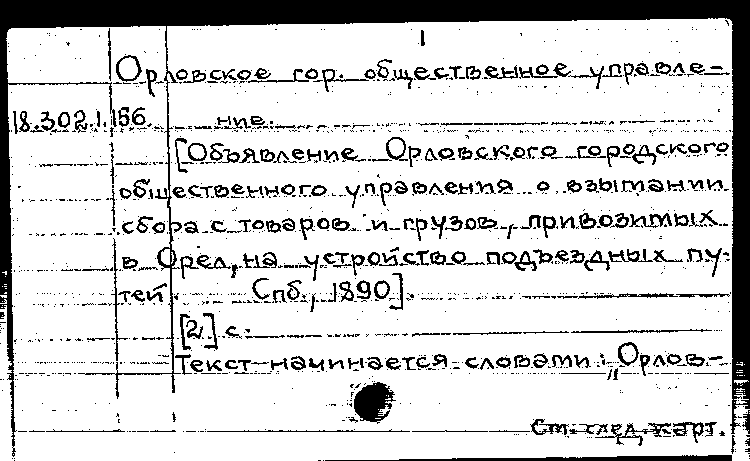 1
Орловское гор. общественное управле-
18.302.1.156. ние.
[Объявление Орловского городского
общественного управления о взымании
сбора с товаров и грузов, привозимых
в Орел, на устройство подъездных пу-
тей. Спб., 1890].
[2] с.
Текст начинается словами: „Орлов-
См. след. карт.